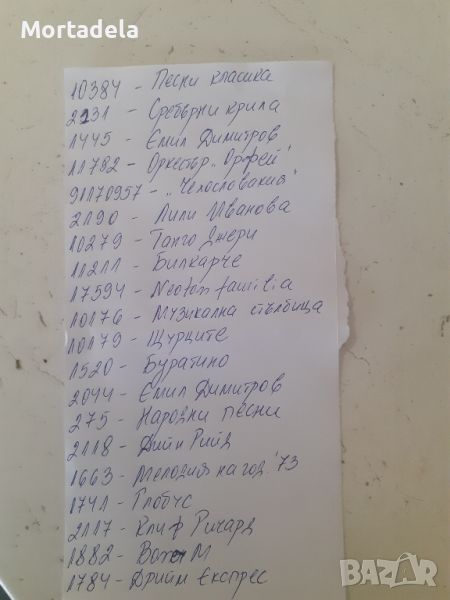 Mortadela
10384 - Песни класика
2131 - Сребърни крила
1445 - Емил Димитров
11782 - Оркестър „Орфей"
91170957 - „Чехословакия"
2190 - Лили Иванова
10279 - Танго Джери
11211 - Билкарче
17594 - Neoton familia
10176 - Музикална стълбица
10179 - Щурците
1520 - Буратино
2044 - Емил Димитров
275 - Народни песни
2118 - Дийн Рийд
1663 - Мелодия на год. '73
1741 - Глобус
2117 - Клиф Ричард
1882 - Бони М
1784 - Дрийм Експрес
BAZAR